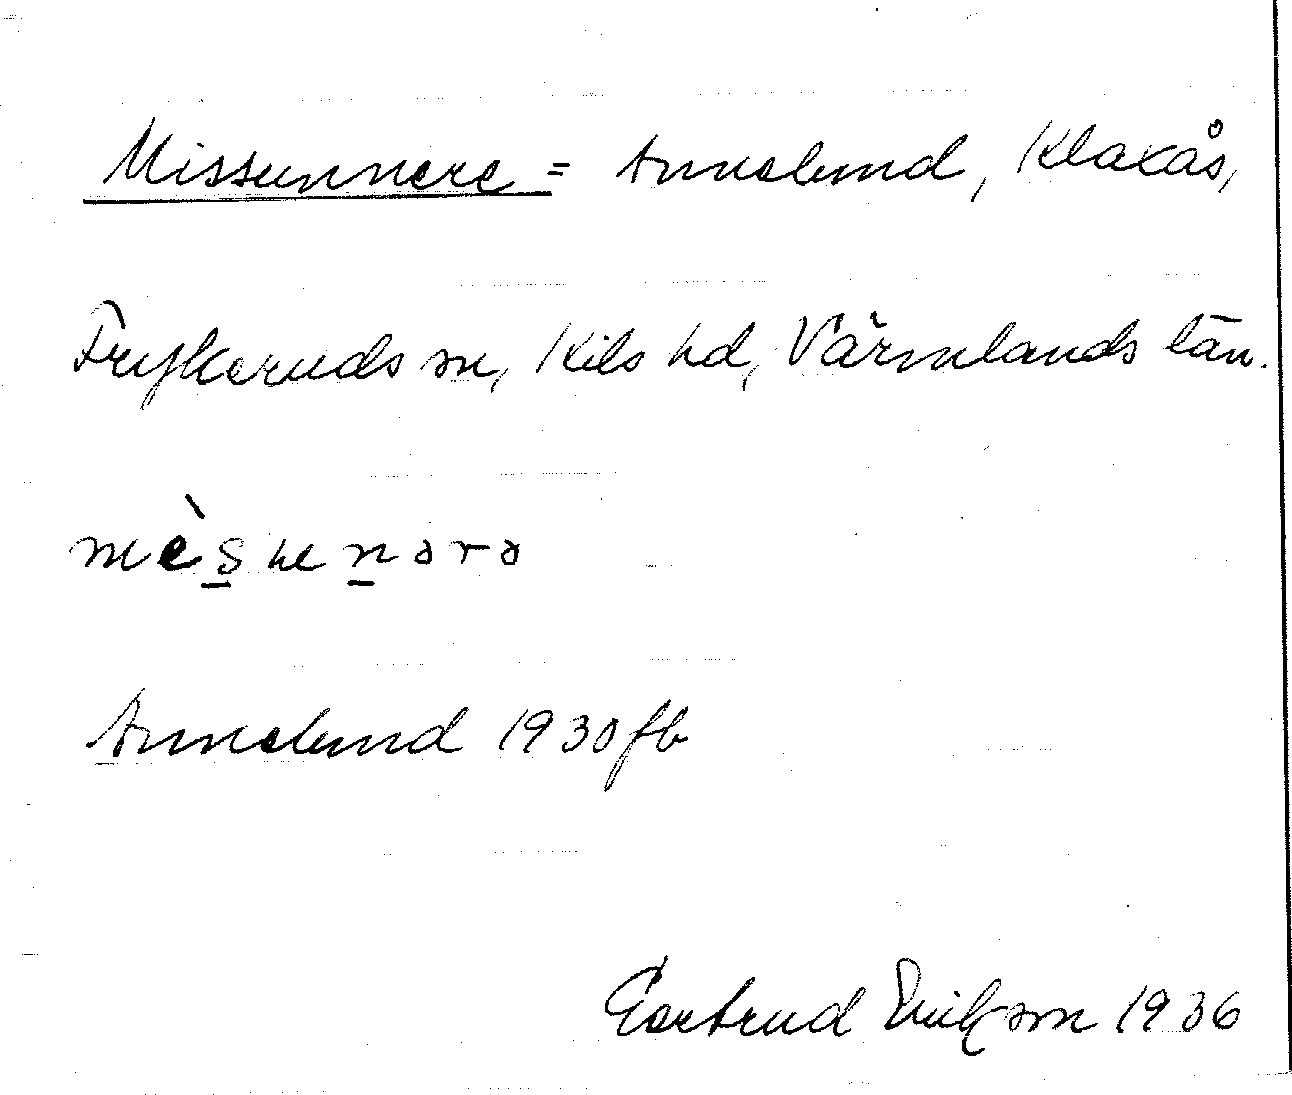 Missunnere = Annelund, Klaxås,
Frykeruds sn, Kils hd, Värmlands län.
mè̱s̱uṉərə
Annelund 1930 fb
Gertrud Erikson 1936